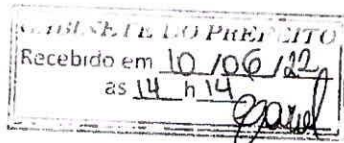 GABINETE DO PREFEITO
Recebido em 10/06/22
as 14 h 14